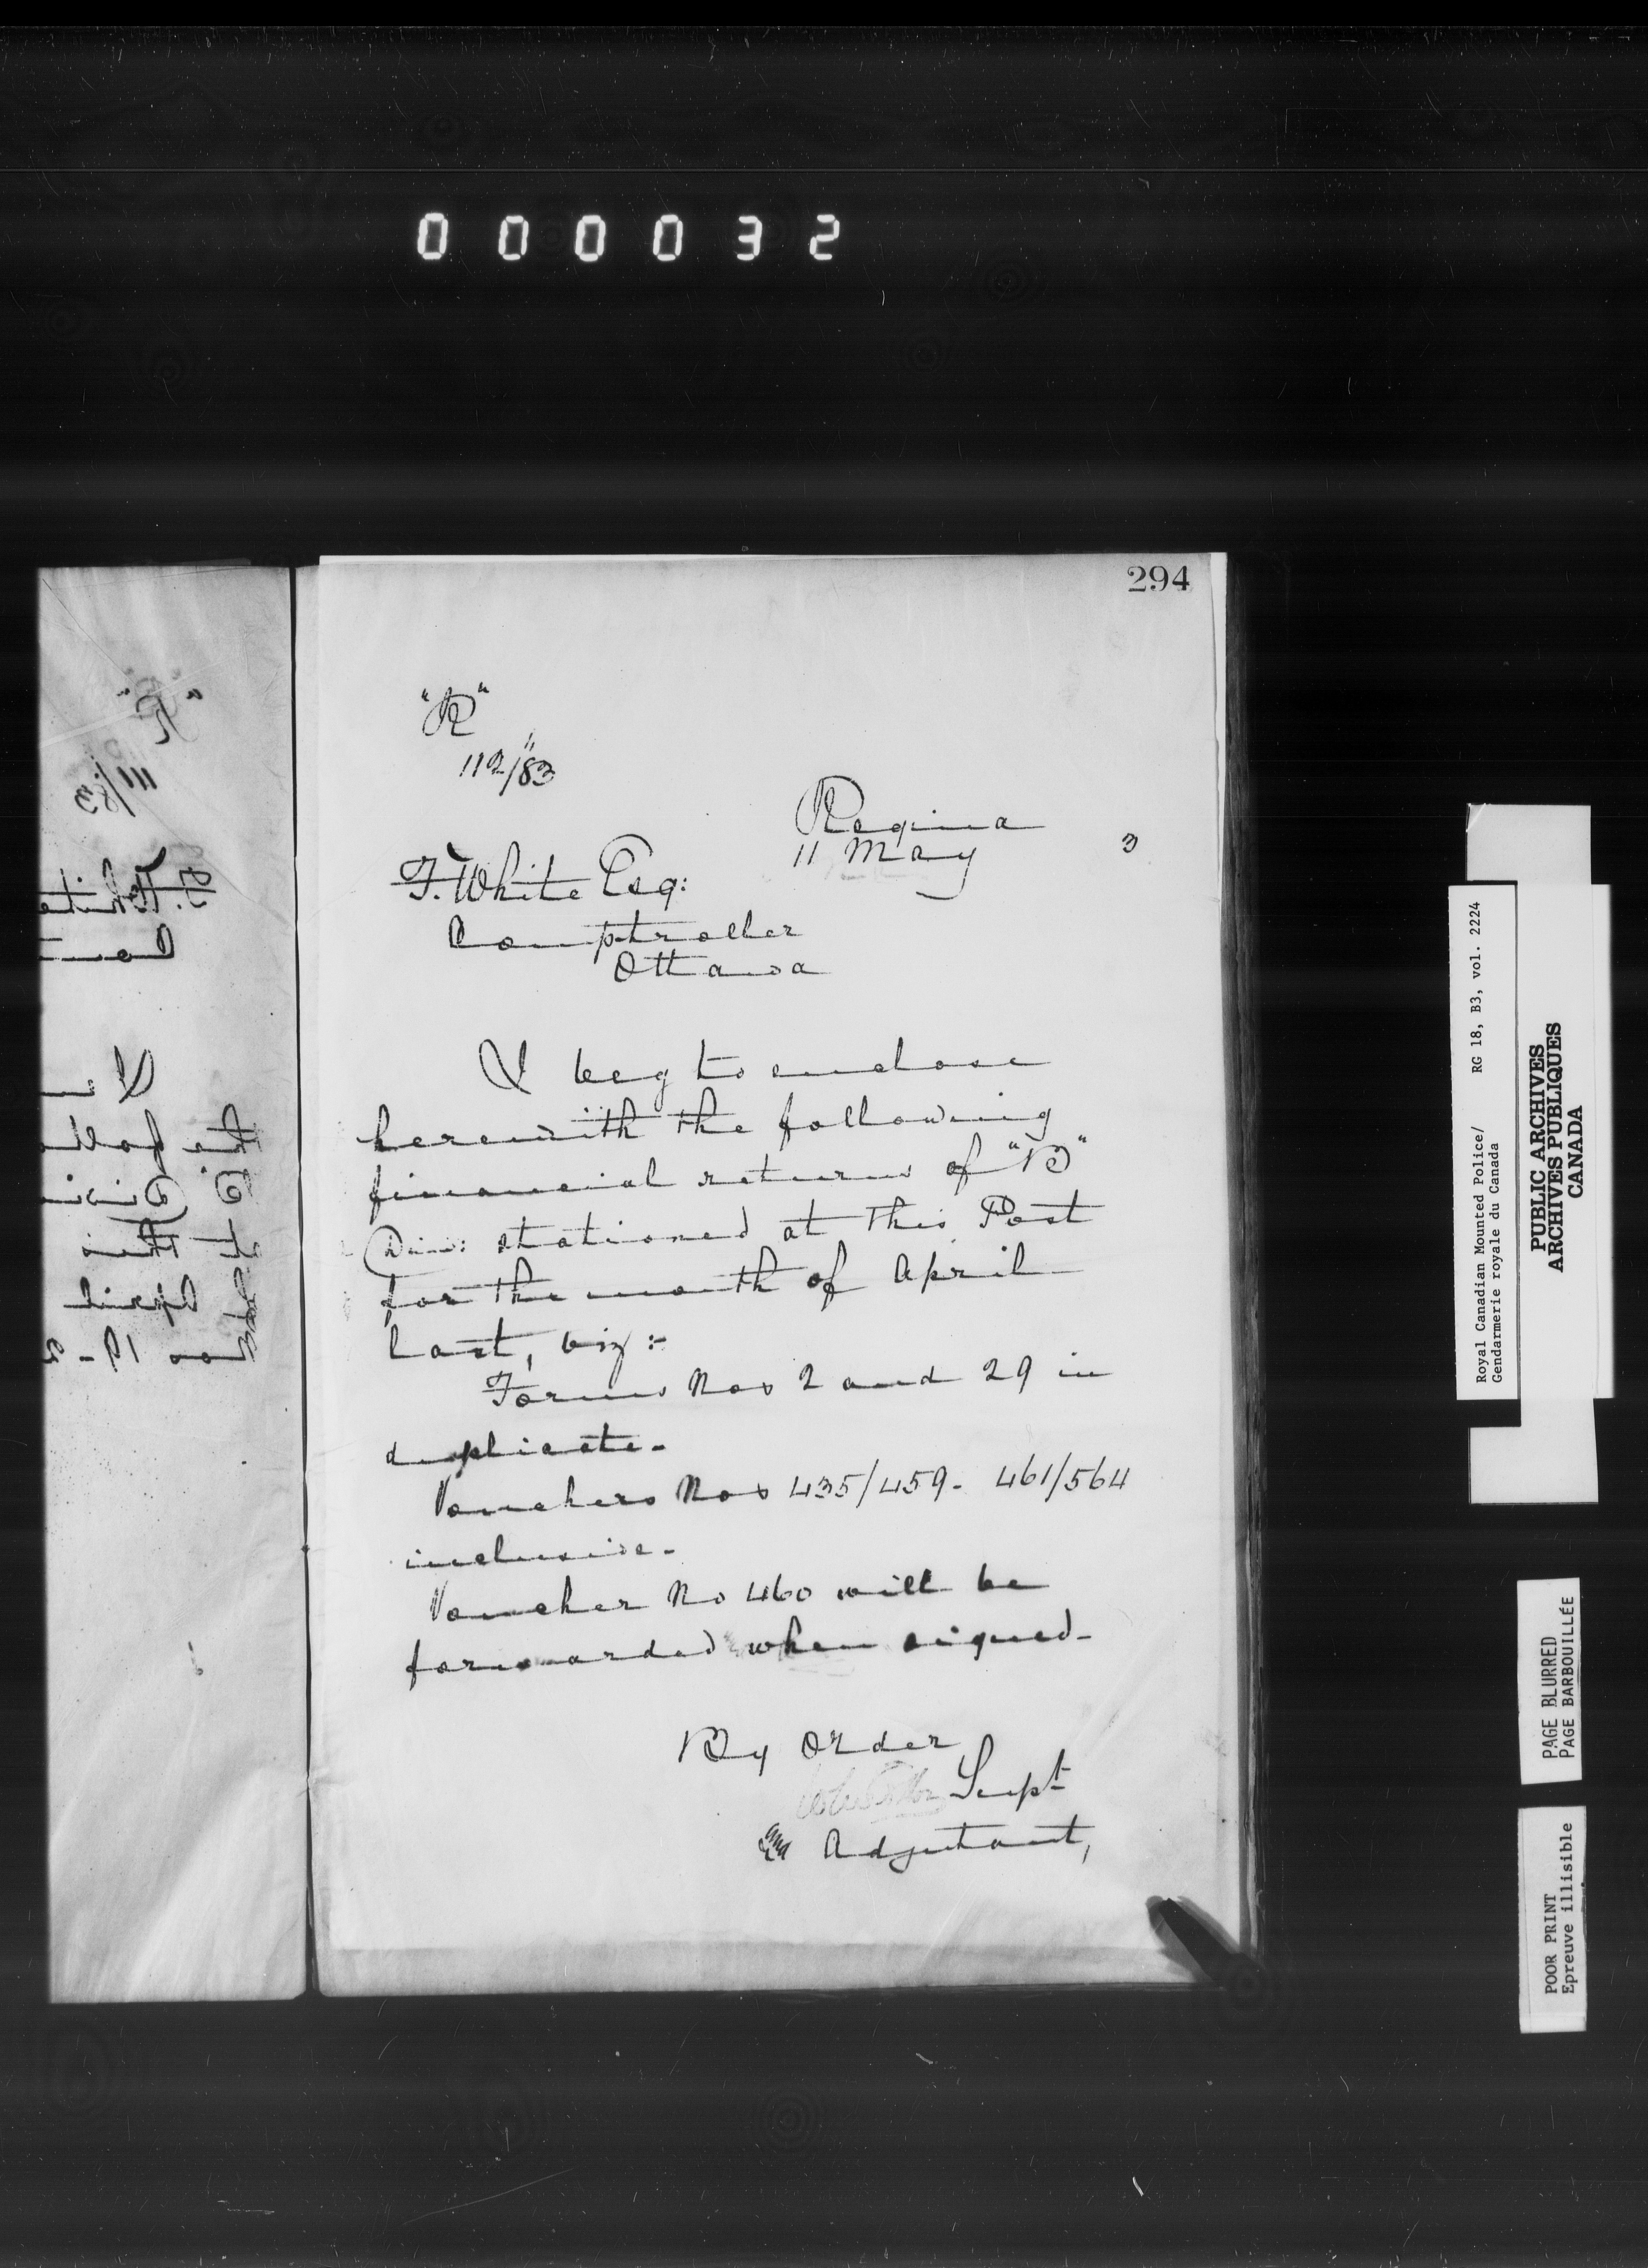 000032
294
"R"
112/83
Regina
11 May 3
F. White Esq:
Comptroller
Ottawa
I beg to enclose
herewith the following
financial returns of "B"
Div: stationed at this Post
for the month of April
last, viz:-
Forms Nos 2 and 29 in
duplicate-
Vouchers Nos 435/459- 461/564
inclusive-
Voucher No 460 will be
forwarded when signed-
By Order
Supt
Adjutant,
Royal Canadian Mounted Police/ RG 18, B3, vol. 2224
Gendarmerie royale du Canada
PUBLIC ARCHIVES
ARCHIVES PUBLIQUES
CANADA
PAGE BLURRED
PAGE BARBOUILLÉE
POOR PRINT
Epreuve illisible